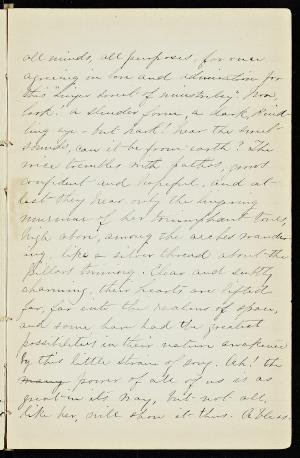 all minds, all purposes, for once
agreeing in love and admiration for
this "sweet singer of
look: a slender form, a dark, kind-
ling eye - but hark! hear the sweet
sounds, can it be from earth? The
voice trembles with pathos, grows
confident and hopeful, and at-
last they hear only the lingering
murmur of her triumphant tones,
high above, among the arches wander-
ing, like a silver thread about the
pillars twining. Clear and softly
charming, their hearts are lifted
far, far into the realms of space,
and some have had the greatest
possibilities in their nature awakened
by this little strain of song. Ah! the
many power of all of us is as
great in its way, but not all,
like her, will show it thus. A bless-